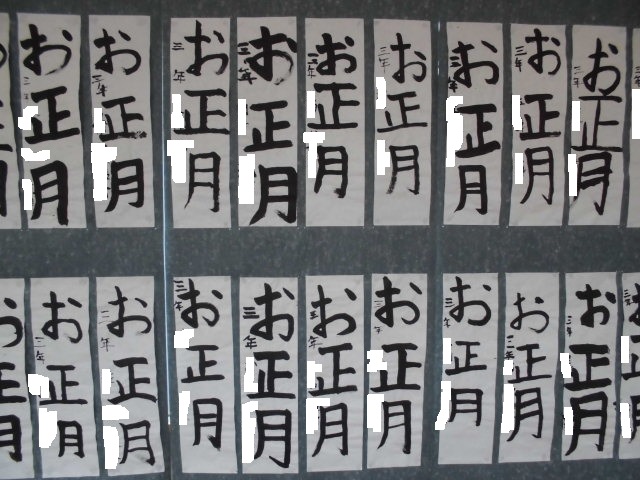 お正月
三年
お正月
三年
お正月
三年
お正月
三年
お正月
三年
お正月
三年
お正月
三年
お正月
三年
お正月
三年
お正月
三年
お正月
三年
お正月
三年
お正月
三年
お正月
三年
お正月
三年
お正月
三年
お正月
三年
お正月
三年